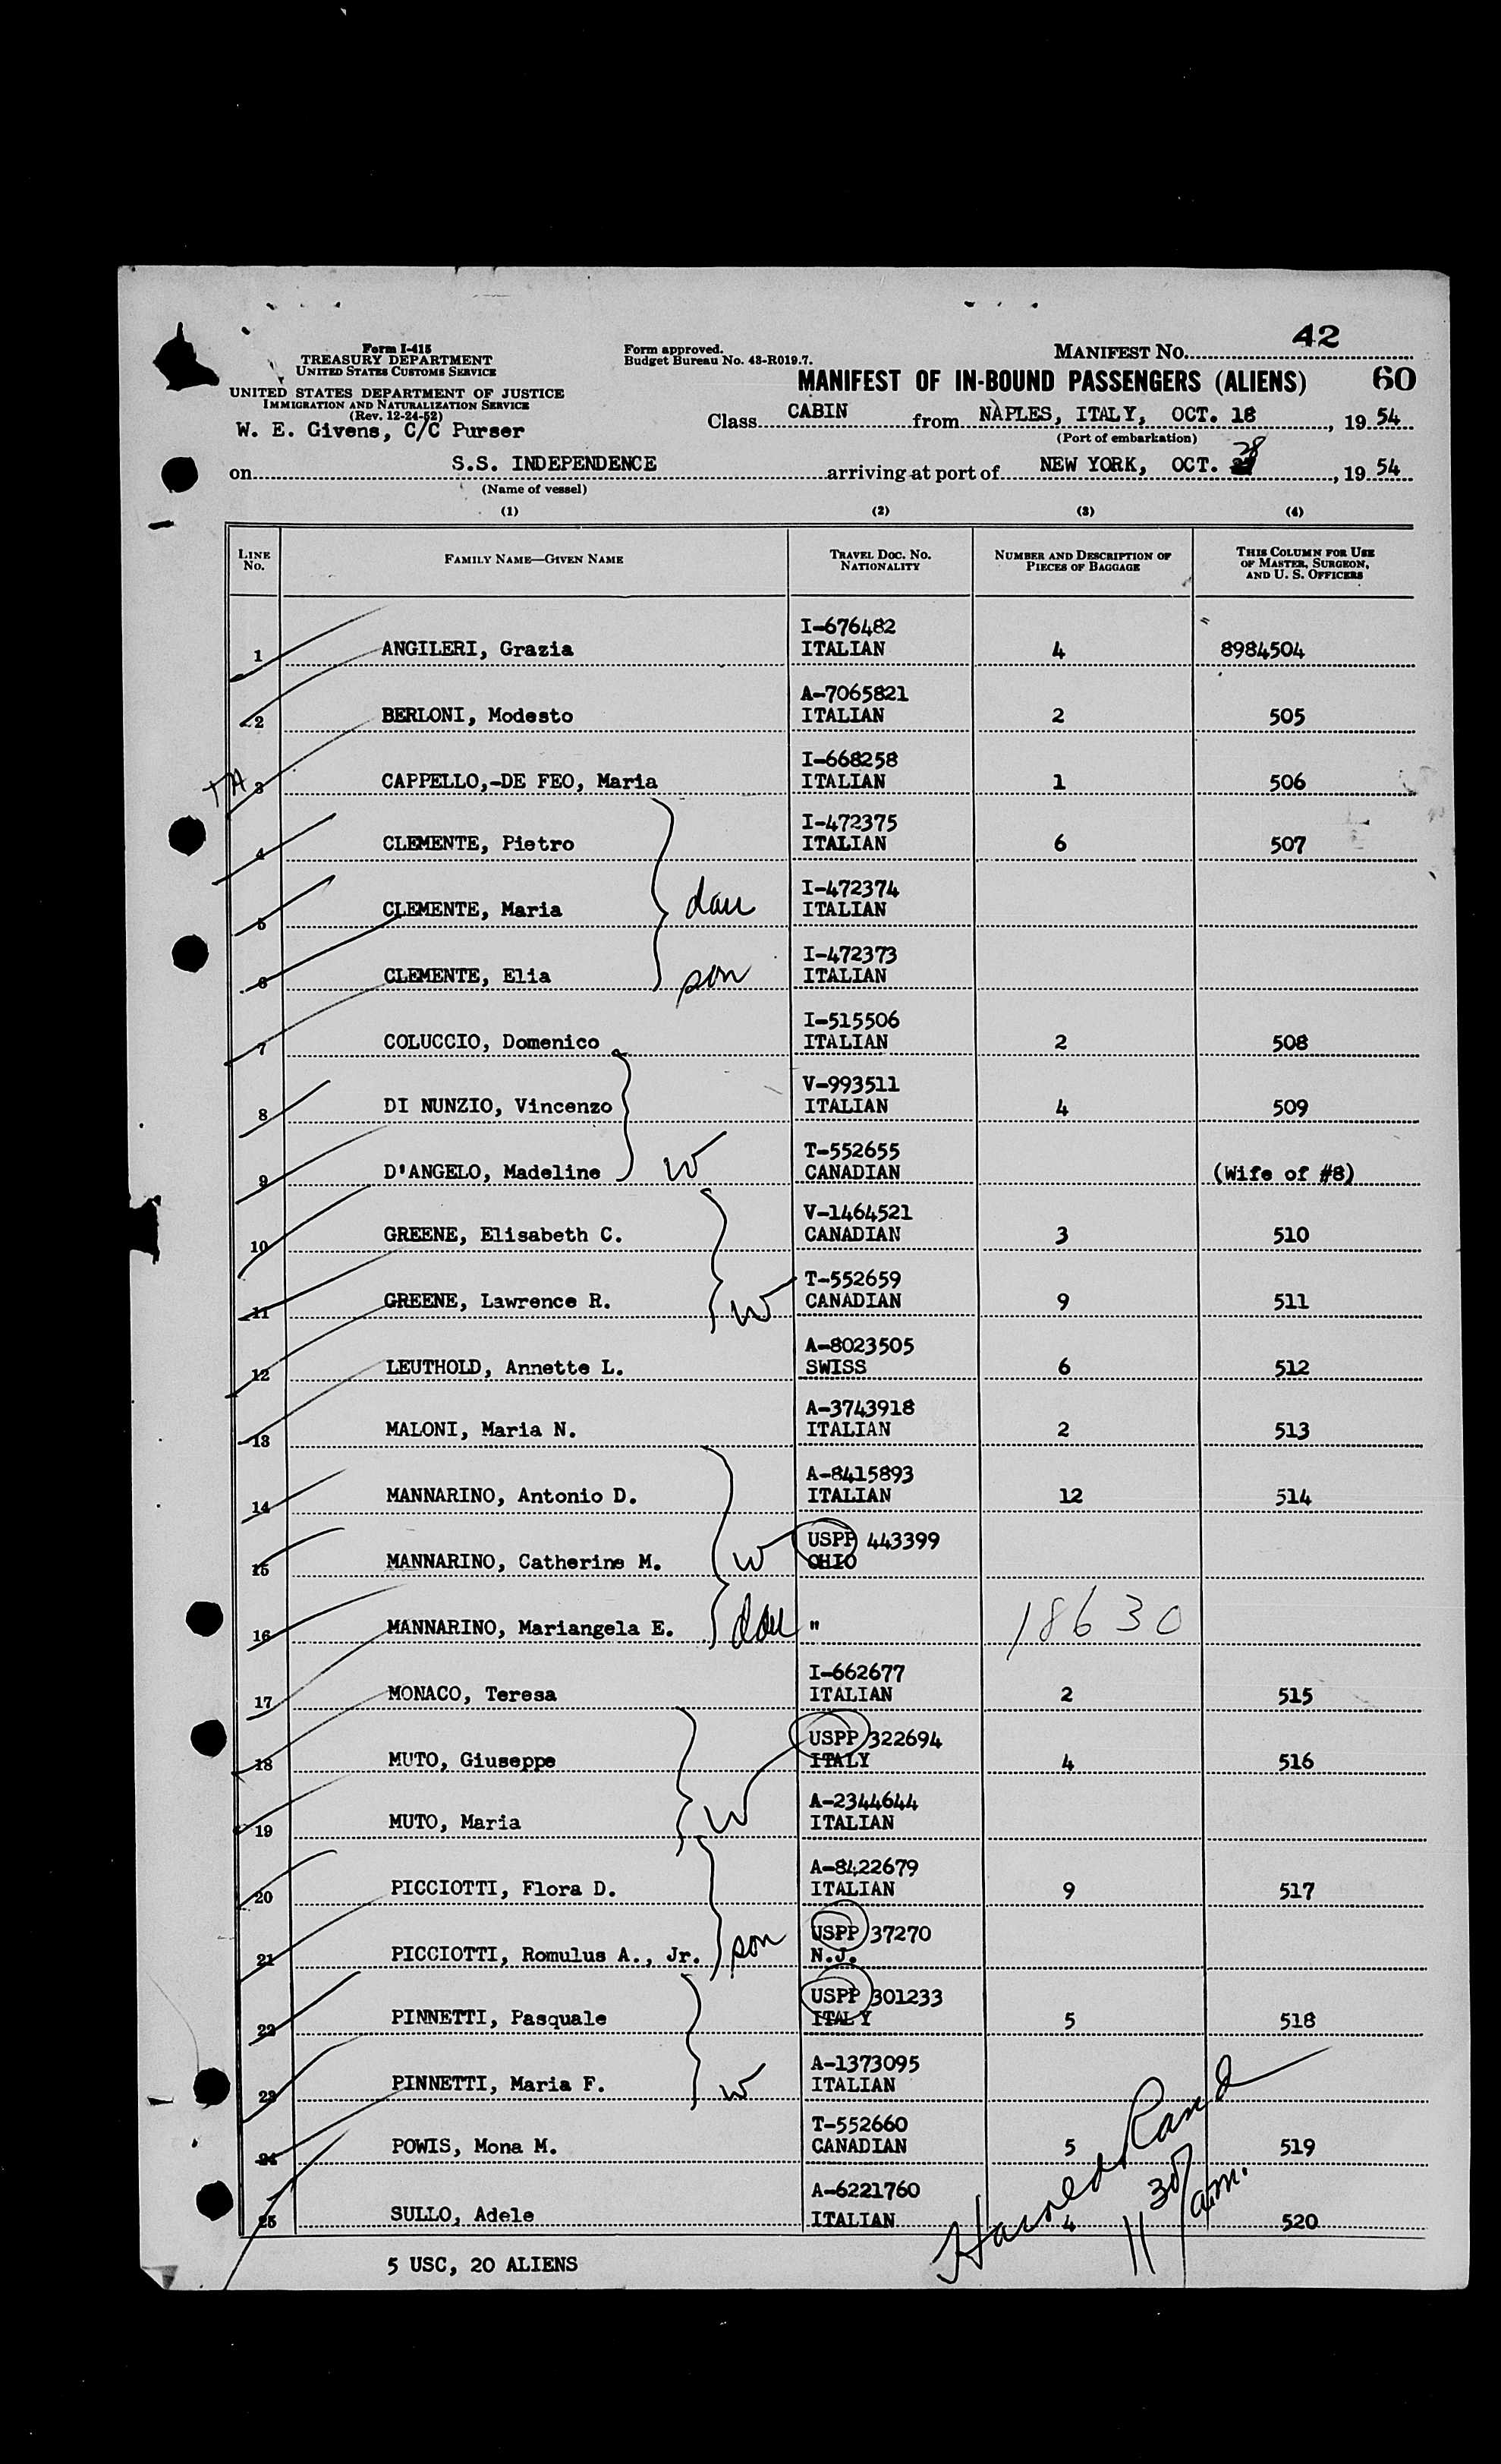 42
Form I-415
TREASURY DEPARTMENT
UNITED STATES CUSTOMS SERVICE
Form approved.
Budget Bureau No. 43-R019.7.
MANIFEST No.
UNITED STATES DEPARTMENT OF JUSTICE
IMMIGRATION AND NATURALIZATION SERVICE
(Rev. 12-24-52)
MANIFEST OF IN-BOUND PASSENGERS (ALIENS) 60
W. E. Givens, C/C Purser
Class CABIN from NAPLES, ITALY, OCT. 18, 19 54
(Port of embarkation)
on S.S. INDEPENDENCE arriving at port of NEW YORK, OCT. 28, 19 54
(Name of vessel)
(1) (2) (3) (4)
LINE No. FAMILY NAME—GIVEN NAME TRAVEL DOC. NO. NATIONALITY NUMBER AND DESCRIPTION OF PIECES OF BAGGAGE THIS COLUMN FOR USE OF MASTER, SURGEON, AND U. S. OFFICERS
I-676482
1 ANGILERI, Grazia ITALIAN 4 8984504
A-7065821
2 BERLONI, Modesto ITALIAN 2 505
I-668258
3 CAPPELLO,-DE FEO, Maria ITALIAN 1 506
I-472375
4 CLEMENTE, Pietro ITALIAN 6 507
I-472374
5 CLEMENTE, Maria dau ITALIAN
I-472373
6 CLEMENTE, Elia son ITALIAN
I-515506
7 COLUCCIO, Domenico ITALIAN 2 508
V-993511
8 DI NUNZIO, Vincenzo ITALIAN 4 509
T-552655
9 D'ANGELO, Madeline W CANADIAN (Wife of #8)
V-1464521
10 GREENE, Elisabeth C. CANADIAN 3 510
T-552659
11 GREENE, Lawrence R. W CANADIAN 9 511
A-8023505
12 LEUTHOLD, Annette L. SWISS 6 512
A-3743918
13 MALONI, Maria N. ITALIAN 2 513
A-8415893
14 MANNARINO, Antonio D. ITALIAN 12 514
USPP 443399
15 MANNARINO, Catherine M. W OHIO
16 MANNARINO, Mariangela E. dau " 18630
I-662677
17 MONACO, Teresa ITALIAN 2 515
USPP 322694
18 MUTO, Giuseppe ITALY 4 516
A-2344644
19 MUTO, Maria W ITALIAN
A-8422679
20 PICCIOTTI, Flora D. ITALIAN 9 517
USPP 37270
21 PICCIOTTI, Romulus A., Jr. son N.J.
USPP 301233
22 PINNETTI, Pasquale ITALY 5 518
A-1373095
23 PINNETTI, Maria F. W ITALIAN
T-552660
24 POWIS, Mona M. CANADIAN 5 519
A-6221760
25 SULLO, Adele ITALIAN 4 520
11 30 a.m.
5 USC, 20 ALIENS